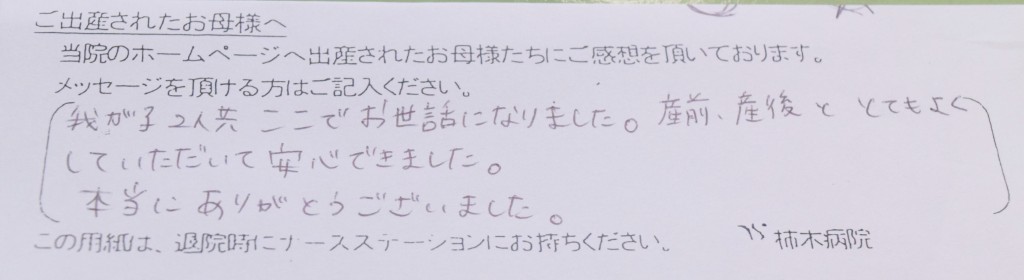 ご出産されたお母様へ
当院のホームページへ出産されたお母様たちにご感想を頂いております。
メッセージを頂ける方はご記入ください。
我が子2人共 ここでお世話になりました。産前、産後と とてもよく
していただいて安心できました。
本当にありがとうございました。
この用紙は、退院時にナースステーションにお持ちください。 柿木病院